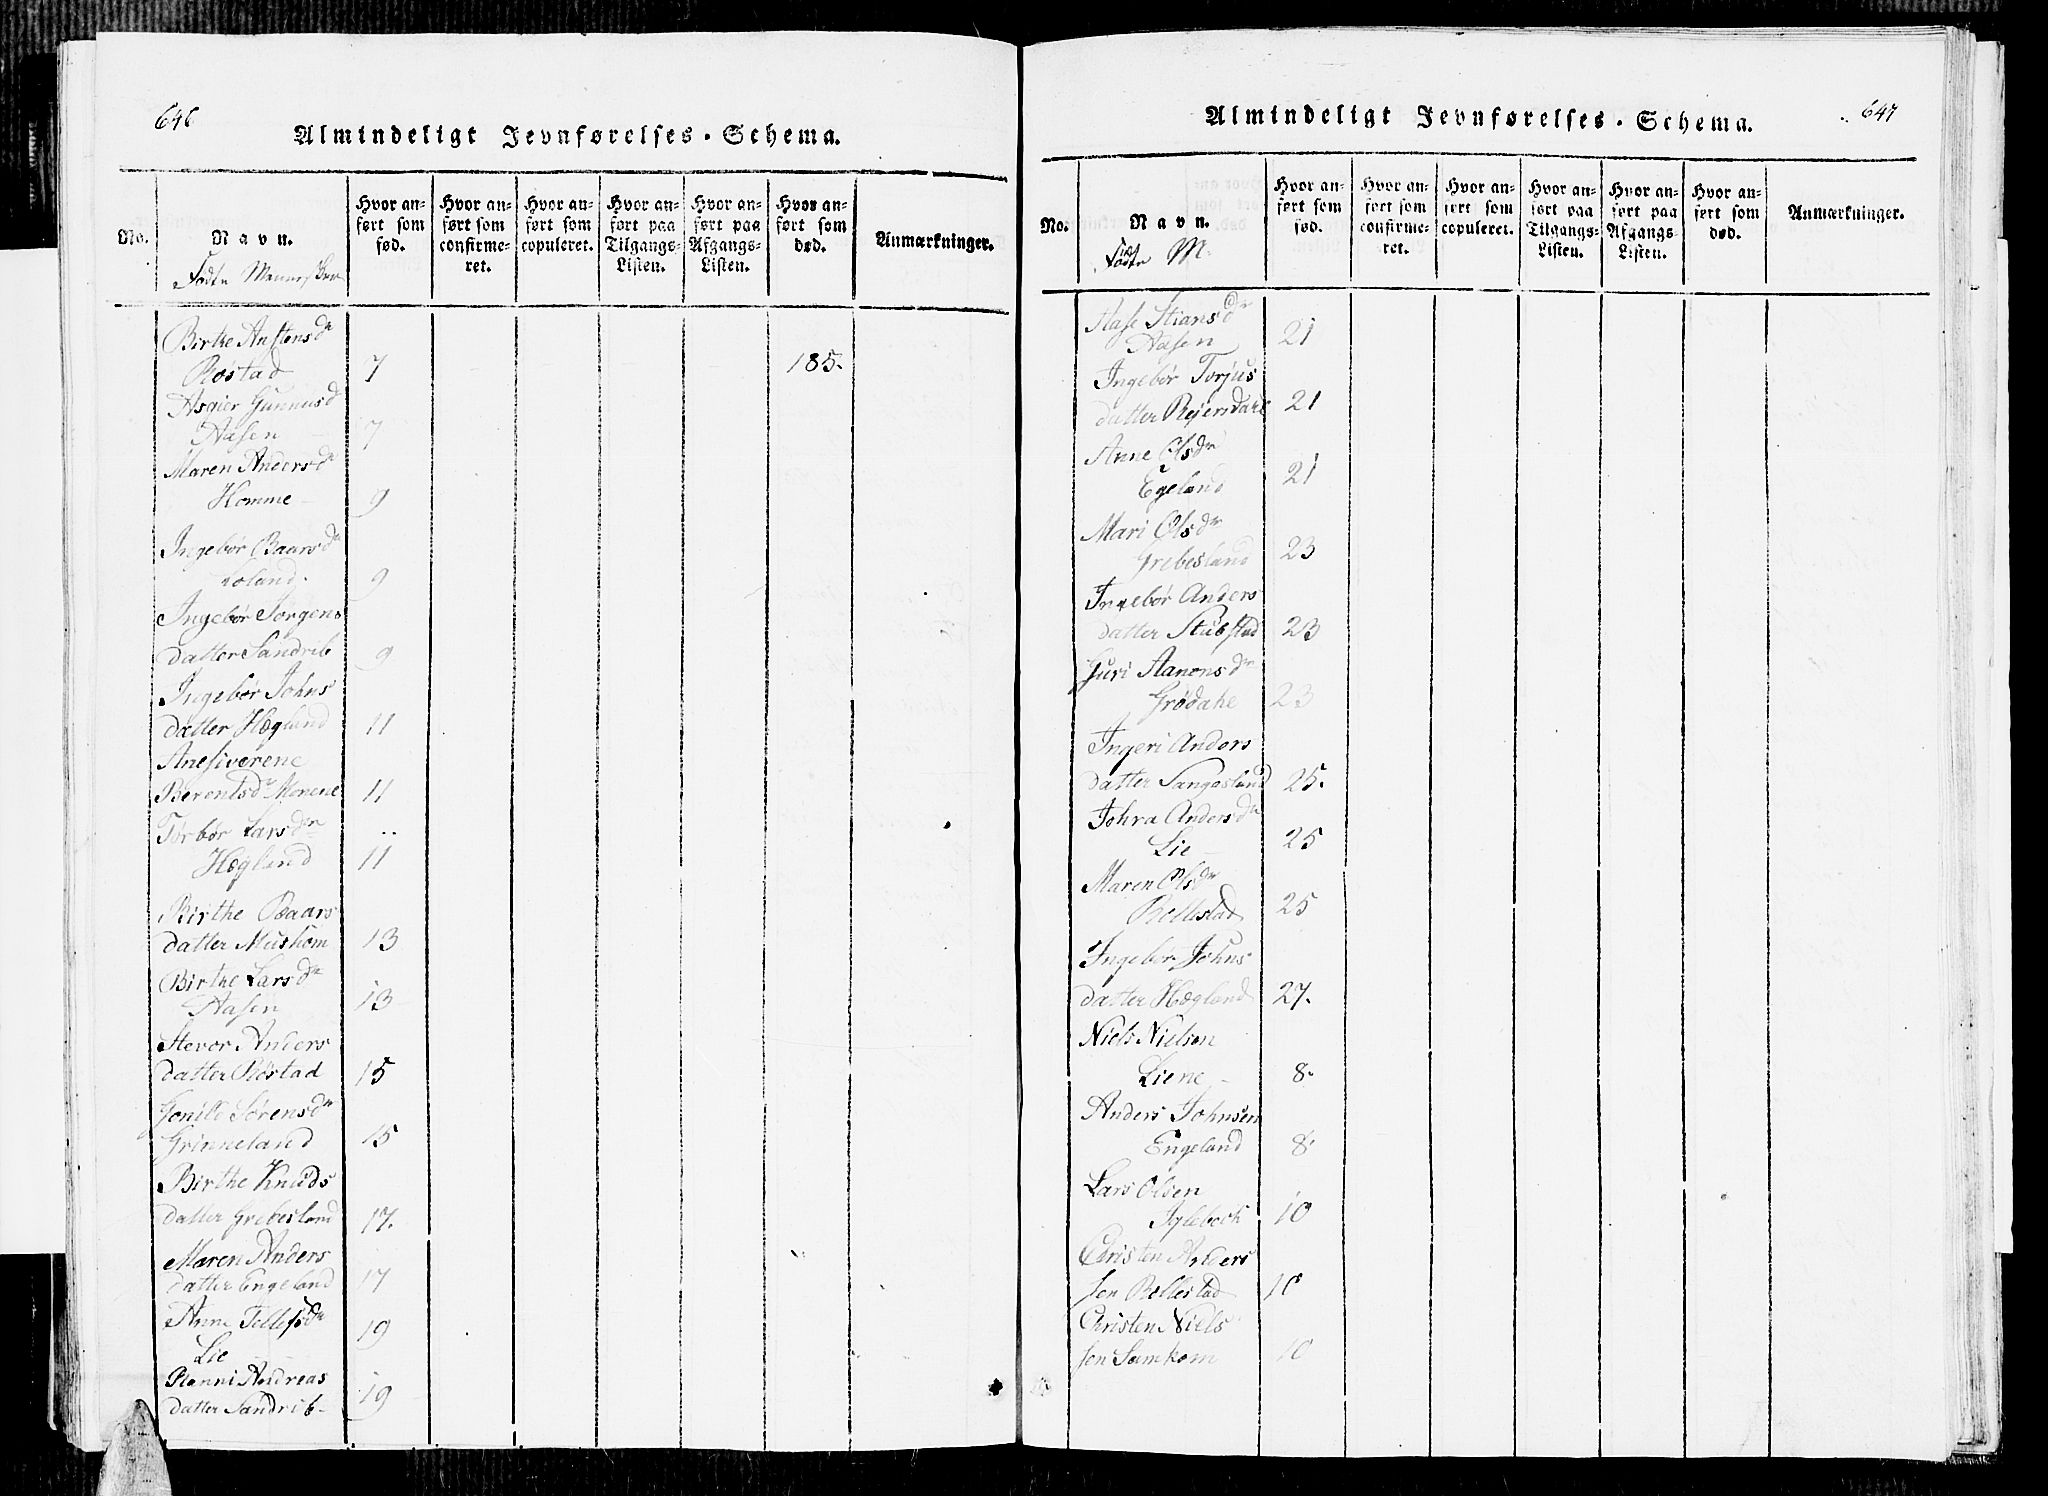 646
Almindeligt Jevnførelses-Schema.
No.
Navn.
Hvor anført som fød.
Hvor anført som confirmeret.
Hvor anført som copuleret.
Hvor anført paa Tilgangs-Listen.
Hvor anført paa Afgangs-Listen.
Hvor anført som død.
Anmærkninger.
Fødte
Birthe Anstensdr
Røstad 7 185.
Asgier Gunnusd
Aasen 7
Maren Andersdr
Homme 9
Ingebør Baarsdr
Loland. 9
Ingebør Jorgens
datter Sandrib 9
Ingebør Johns
datter Høgland 11
Anesiverene
Berentsdr Monene 11
Torbør Larsdr
Høgland 11
Birthe Baars
datter Mushom 13
Birthe Larsdr
Aasen 13
Stevor Anders
datter Røstad 15
Gonild Sørensdr
Grinneland 15
Birthe Knuds
datter Grebesland 17.
Maren Anders
datter Engeland 17
Anne Tellefsdr
Lie 19
Ranni Andreas
datter Sandrib- 19
647
Almindeligt Jevnførelses-Schema.
No.
Navn.
Hvor anført som fød.
Hvor anført som confirmeret.
Hvor anført som copuleret.
Hvor anført paa Tilgangs-Listen.
Hvor anført paa Afgangs-Listen.
Hvor anført som død.
Anmærkninger.
Fødte M.
Aase Stiansdr
Aasen 21
Ingebør Torjus
datter Reiersdahl 21
Anne Olsdr
Egeland 21
Mari Olsdr
Grebesland 23
Ingebør Anders
datter Stubstad 23
Guri Aanonsdr
Grødahe 23
Ingeri Anders
datter Sangesland 25.
Johra Andersdr
Lie 25
Maren Olsdr
Bellestad 25
Ingebør Johns
datter Høgland 27.
Niels Nielsen
Liene 8.
Anders Johnsen
Engeland 8
Lars Olsen
Iglebech 10
Christen Anders
sen Bellestad 10
Christen Niels
sen Samkom 10